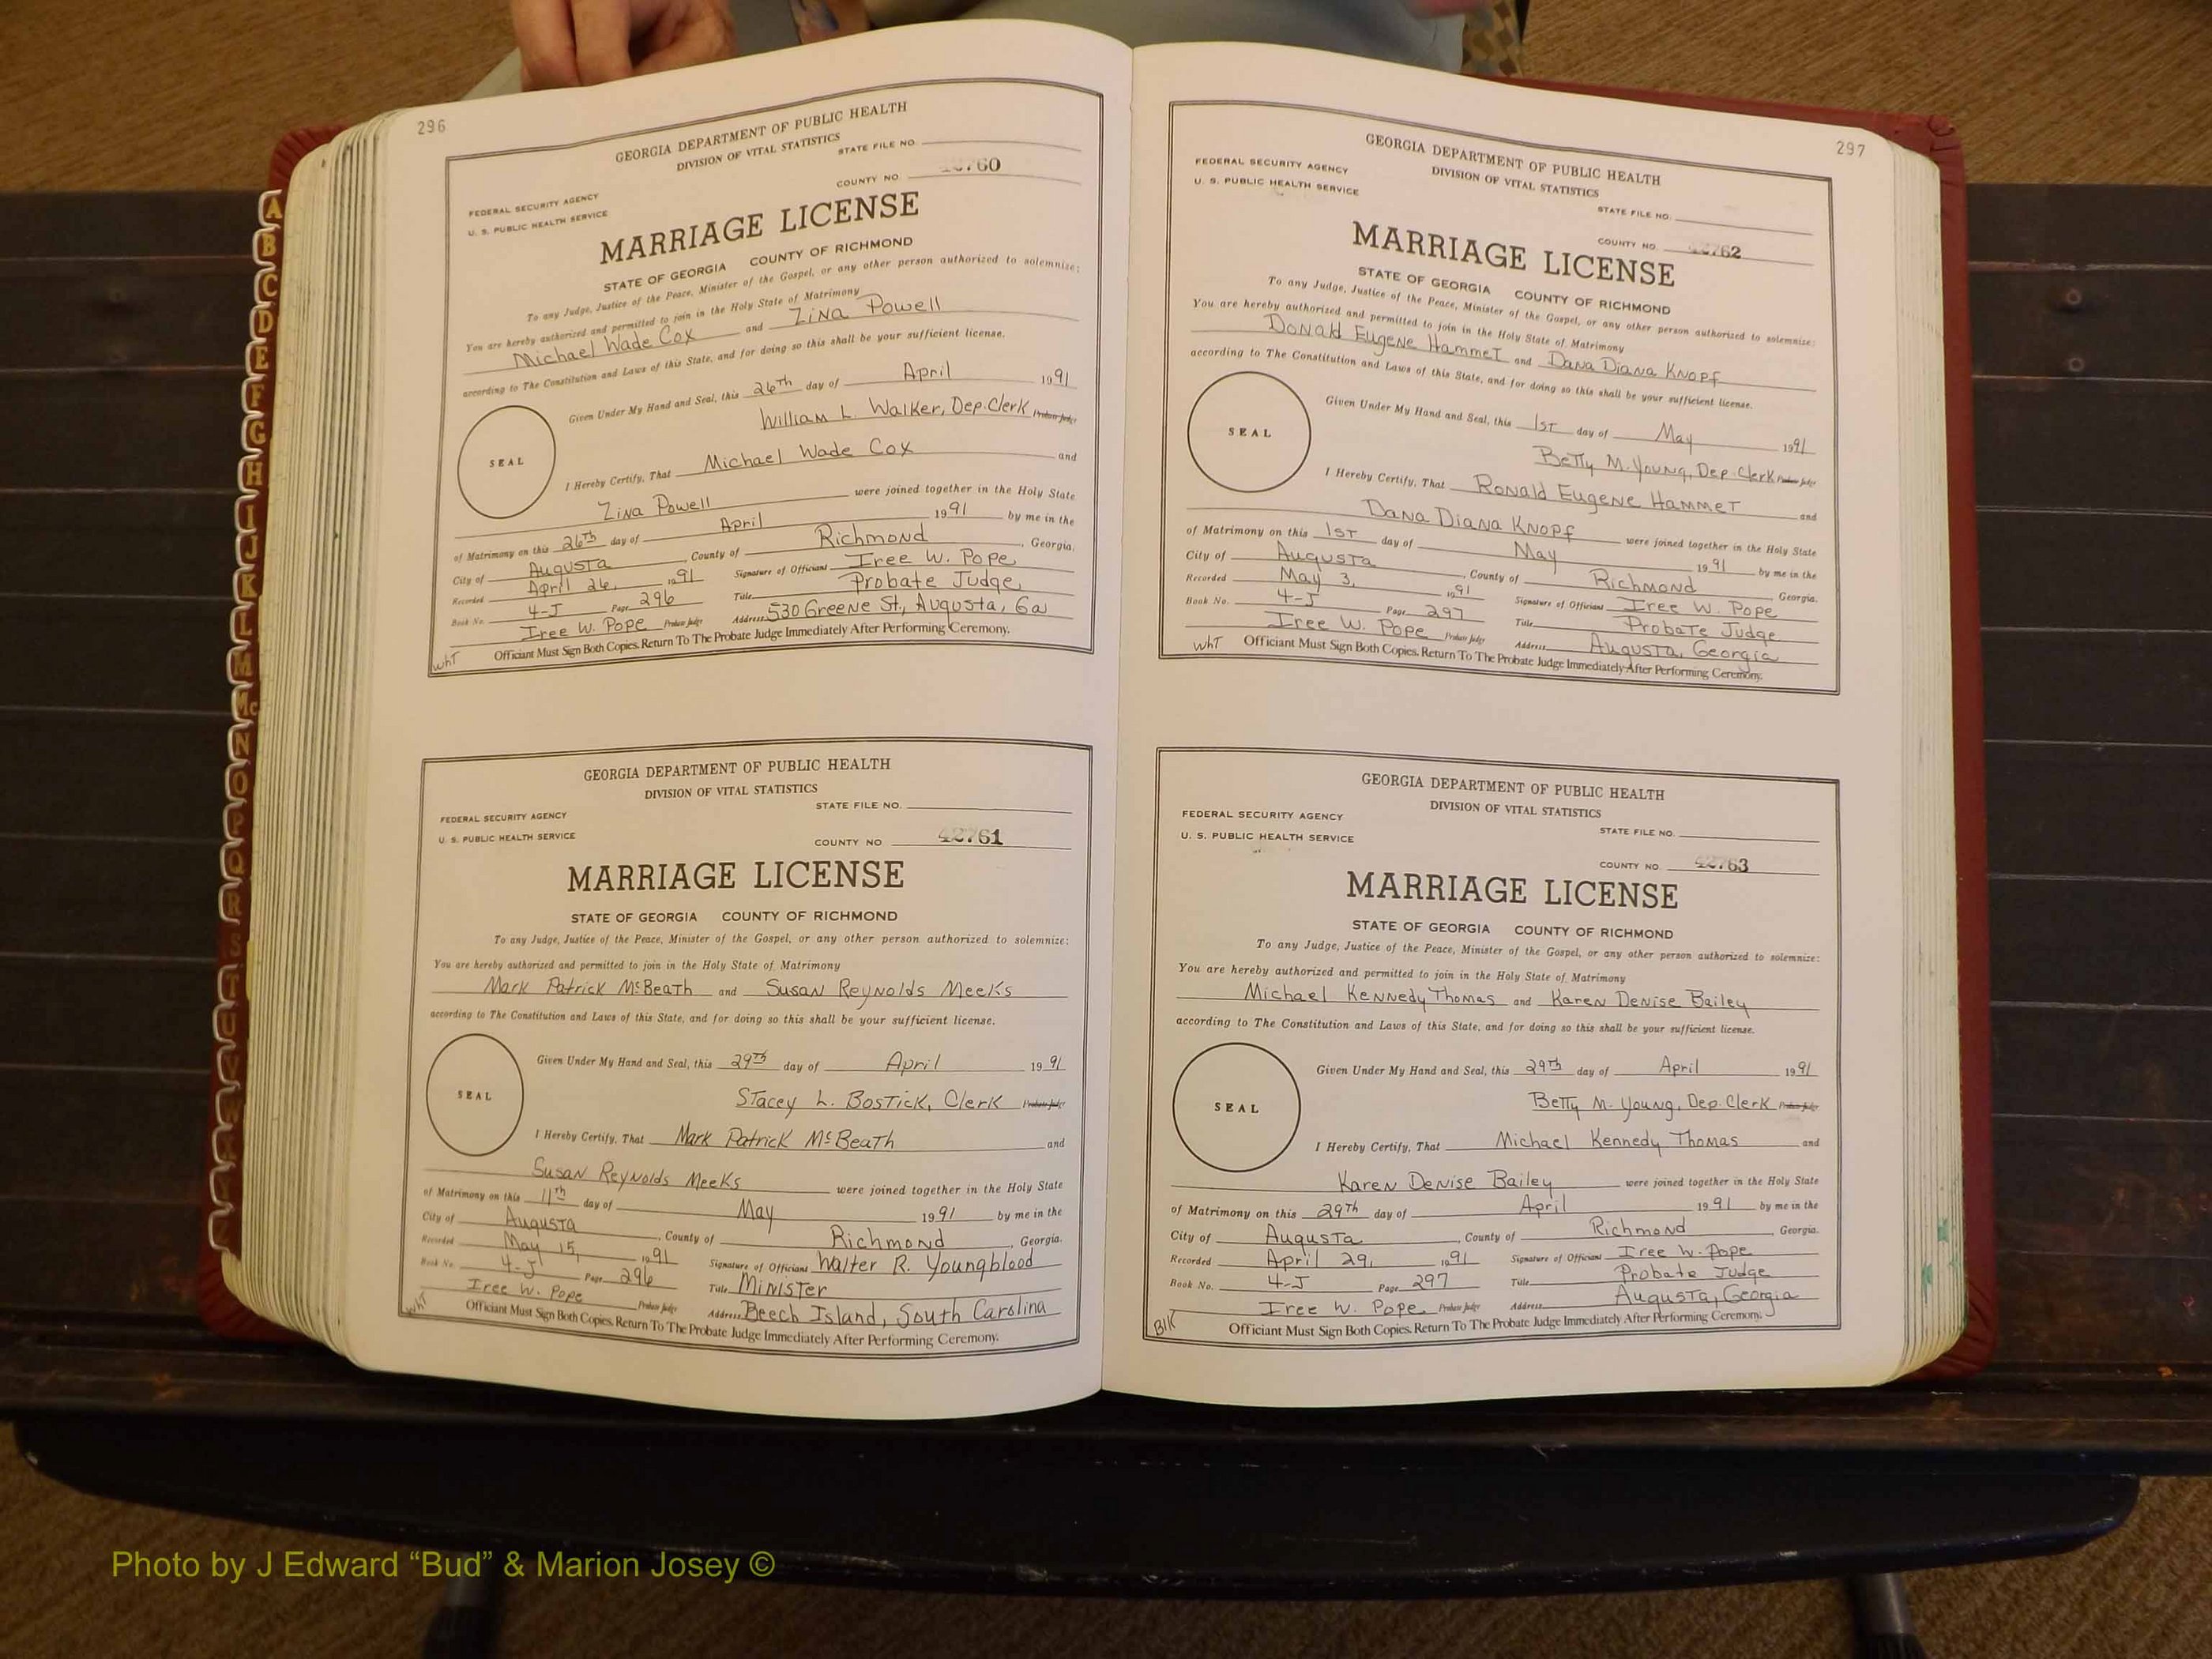 296
GEORGIA DEPARTMENT OF PUBLIC HEALTH
DIVISION OF VITAL STATISTICS
STATE FILE NO.
FEDERAL SECURITY AGENCY
U. S. PUBLIC HEALTH SERVICE
COUNTY NO. 42760
MARRIAGE LICENSE
STATE OF GEORGIA COUNTY OF RICHMOND
To any Judge, Justice of the Peace, Minister of the Gospel, or any other person authorized to solemnize:
You are hereby authorized and permitted to join in the Holy State of Matrimony
Michael Wade Cox and Zina Powell
according to The Constitution and Laws of this State, and for doing so this shall be your sufficient license.
Given Under My Hand and Seal, this 26Th day of April 1991
William L. Walker, Dep. Clerk Probate Judge
SEAL
I Hereby Certify, That Michael Wade Cox and
Zina Powell were joined together in the Holy State
of Matrimony on this 26Th day of April 1991 by me in the
City of Augusta, County of Richmond, Georgia.
Recorded April 26, 1991 Signature of Officiant Iree W. Pope
Book No. 4-J Page 296 Title Probate Judge
Iree W. Pope Probate Judge Address 530 Greene St., Augusta, Ga
WhT Officiant Must Sign Both Copies. Return To The Probate Judge Immediately After Performing Ceremony.
GEORGIA DEPARTMENT OF PUBLIC HEALTH
DIVISION OF VITAL STATISTICS
STATE FILE NO.
FEDERAL SECURITY AGENCY
U. S. PUBLIC HEALTH SERVICE
COUNTY NO 42761
MARRIAGE LICENSE
STATE OF GEORGIA COUNTY OF RICHMOND
To any Judge, Justice of the Peace, Minister of the Gospel, or any other person authorized to solemnize:
You are hereby authorized and permitted to join in the Holy State of Matrimony
Mark Patrick McBeath and Susan Reynolds Meeks
according to The Constitution and Laws of this State, and for doing so this shall be your sufficient license.
Given Under My Hand and Seal, this 29Th day of April 1991
Stacey L. Bostick, Clerk Probate Judge
SEAL
I Hereby Certify, That Mark Patrick McBeath and
Susan Reynolds Meeks were joined together in the Holy State
of Matrimony on this 11th day of May 1991 by me in the
City of Augusta, County of Richmond, Georgia.
Recorded May 15, 1991 Signature of Officiant Walter R. Youngblood
Book No. 4-J Page 296 Title Minister
Iree W. Pope Probate Judge Address Beech Island, South Carolina
WhT Officiant Must Sign Both Copies. Return To The Probate Judge Immediately After Performing Ceremony.
297
GEORGIA DEPARTMENT OF PUBLIC HEALTH
DIVISION OF VITAL STATISTICS
FEDERAL SECURITY AGENCY
U. S. PUBLIC HEALTH SERVICE
STATE FILE NO.
COUNTY NO. 42762
MARRIAGE LICENSE
STATE OF GEORGIA COUNTY OF RICHMOND
To any Judge, Justice of the Peace, Minister of the Gospel, or any other person authorized to solemnize:
You are hereby authorized and permitted to join in the Holy State of Matrimony
Donald Eugene Hammet and Dana Diana Knopf
according to The Constitution and Laws of this State, and for doing so this shall be your sufficient license.
Given Under My Hand and Seal, this 1ST day of May 1991
Betty M. Young, Dep Clerk Probate Judge
SEAL
I Hereby Certify, That Ronald Eugene Hammet and
Dana Diana Knopf were joined together in the Holy State
of Matrimony on this 1ST day of May 1991 by me in the
City of Augusta, County of Richmond Georgia.
Recorded May 3, 1991 Signature of Officiant Iree W. Pope
Book No. 4-J Page 297 Title Probate Judge
Iree W. Pope Probate Judge Address Augusta, Georgia
WhT Officiant Must Sign Both Copies. Return To The Probate Judge Immediately After Performing Ceremony.
GEORGIA DEPARTMENT OF PUBLIC HEALTH
DIVISION OF VITAL STATISTICS
FEDERAL SECURITY AGENCY
U. S. PUBLIC HEALTH SERVICE
STATE FILE NO.
COUNTY NO. 42763
MARRIAGE LICENSE
STATE OF GEORGIA COUNTY OF RICHMOND
To any Judge, Justice of the Peace, Minister of the Gospel, or any other person authorized to solemnize:
You are hereby authorized and permitted to join in the Holy State of Matrimony
Michael Kennedy Thomas and Karen Denise Bailey
according to The Constitution and Laws of this State, and for doing so this shall be your sufficient license.
Given Under My Hand and Seal, this 29th day of April 1991
Betty M. Young, Dep. Clerk Probate Judge
SEAL
I Hereby Certify, That Michael Kennedy Thomas and
Karen Denise Bailey were joined together in the Holy State
of Matrimony on this 29Th day of April 1991 by me in the
City of Augusta, County of Richmond, Georgia.
Recorded April 29, 1991 Signature of Officiant Iree W. Pope
Book No. 4-J Page 297 Title Probate Judge
Iree W. Pope Probate Judge Address Augusta, Georgia
BlK Officiant Must Sign Both Copies. Return To The Probate Judge Immediately After Performing Ceremony.
A
B
C
D
E
F
G
H
I
J
K
L
M
Mc
N
O
P
Q
R
S
T
U
V
W
Photo by J Edward “Bud” & Marion Josey ©